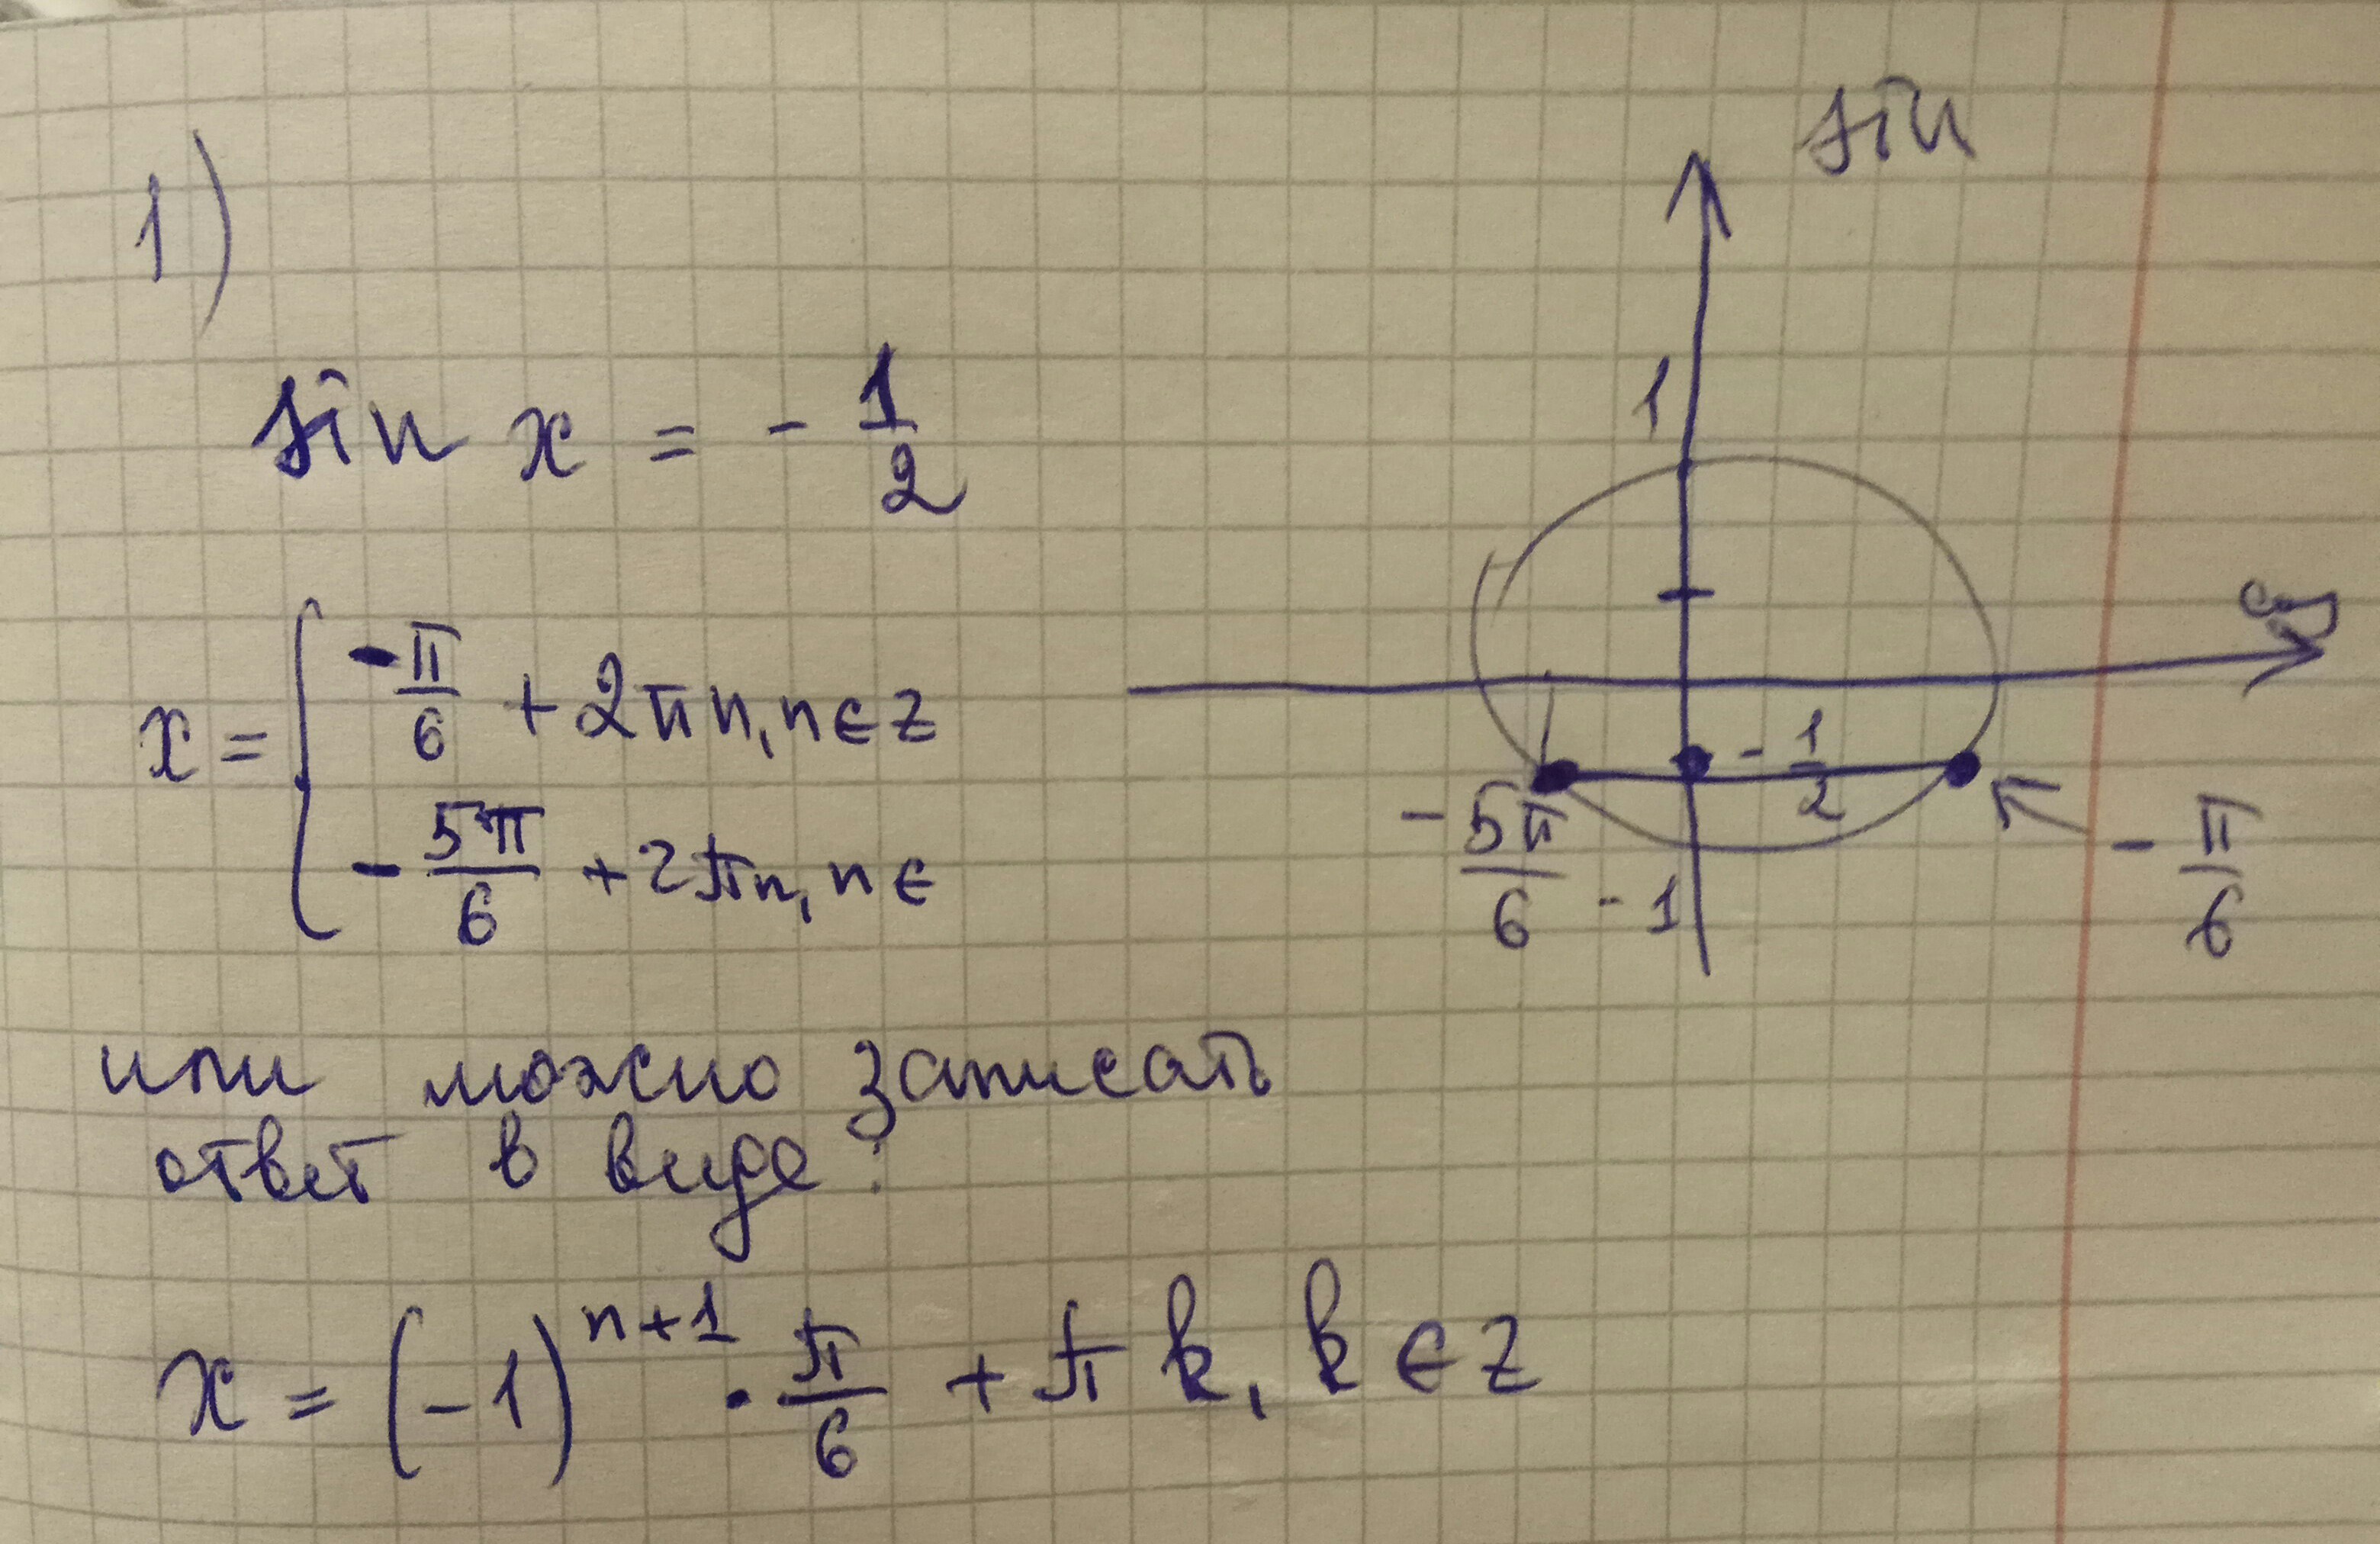 1)
sin x = - 1/2
x = { -π/6 + 2πn, n ∈ z
- 5π/6 + 2πn, n ∈
или можно записать
ответ в виде:
x = (-1)^(n+1) · π/6 + πk, k ∈ z
sin
1
cos
- 1/2
- 5π/6
-1
- π/6